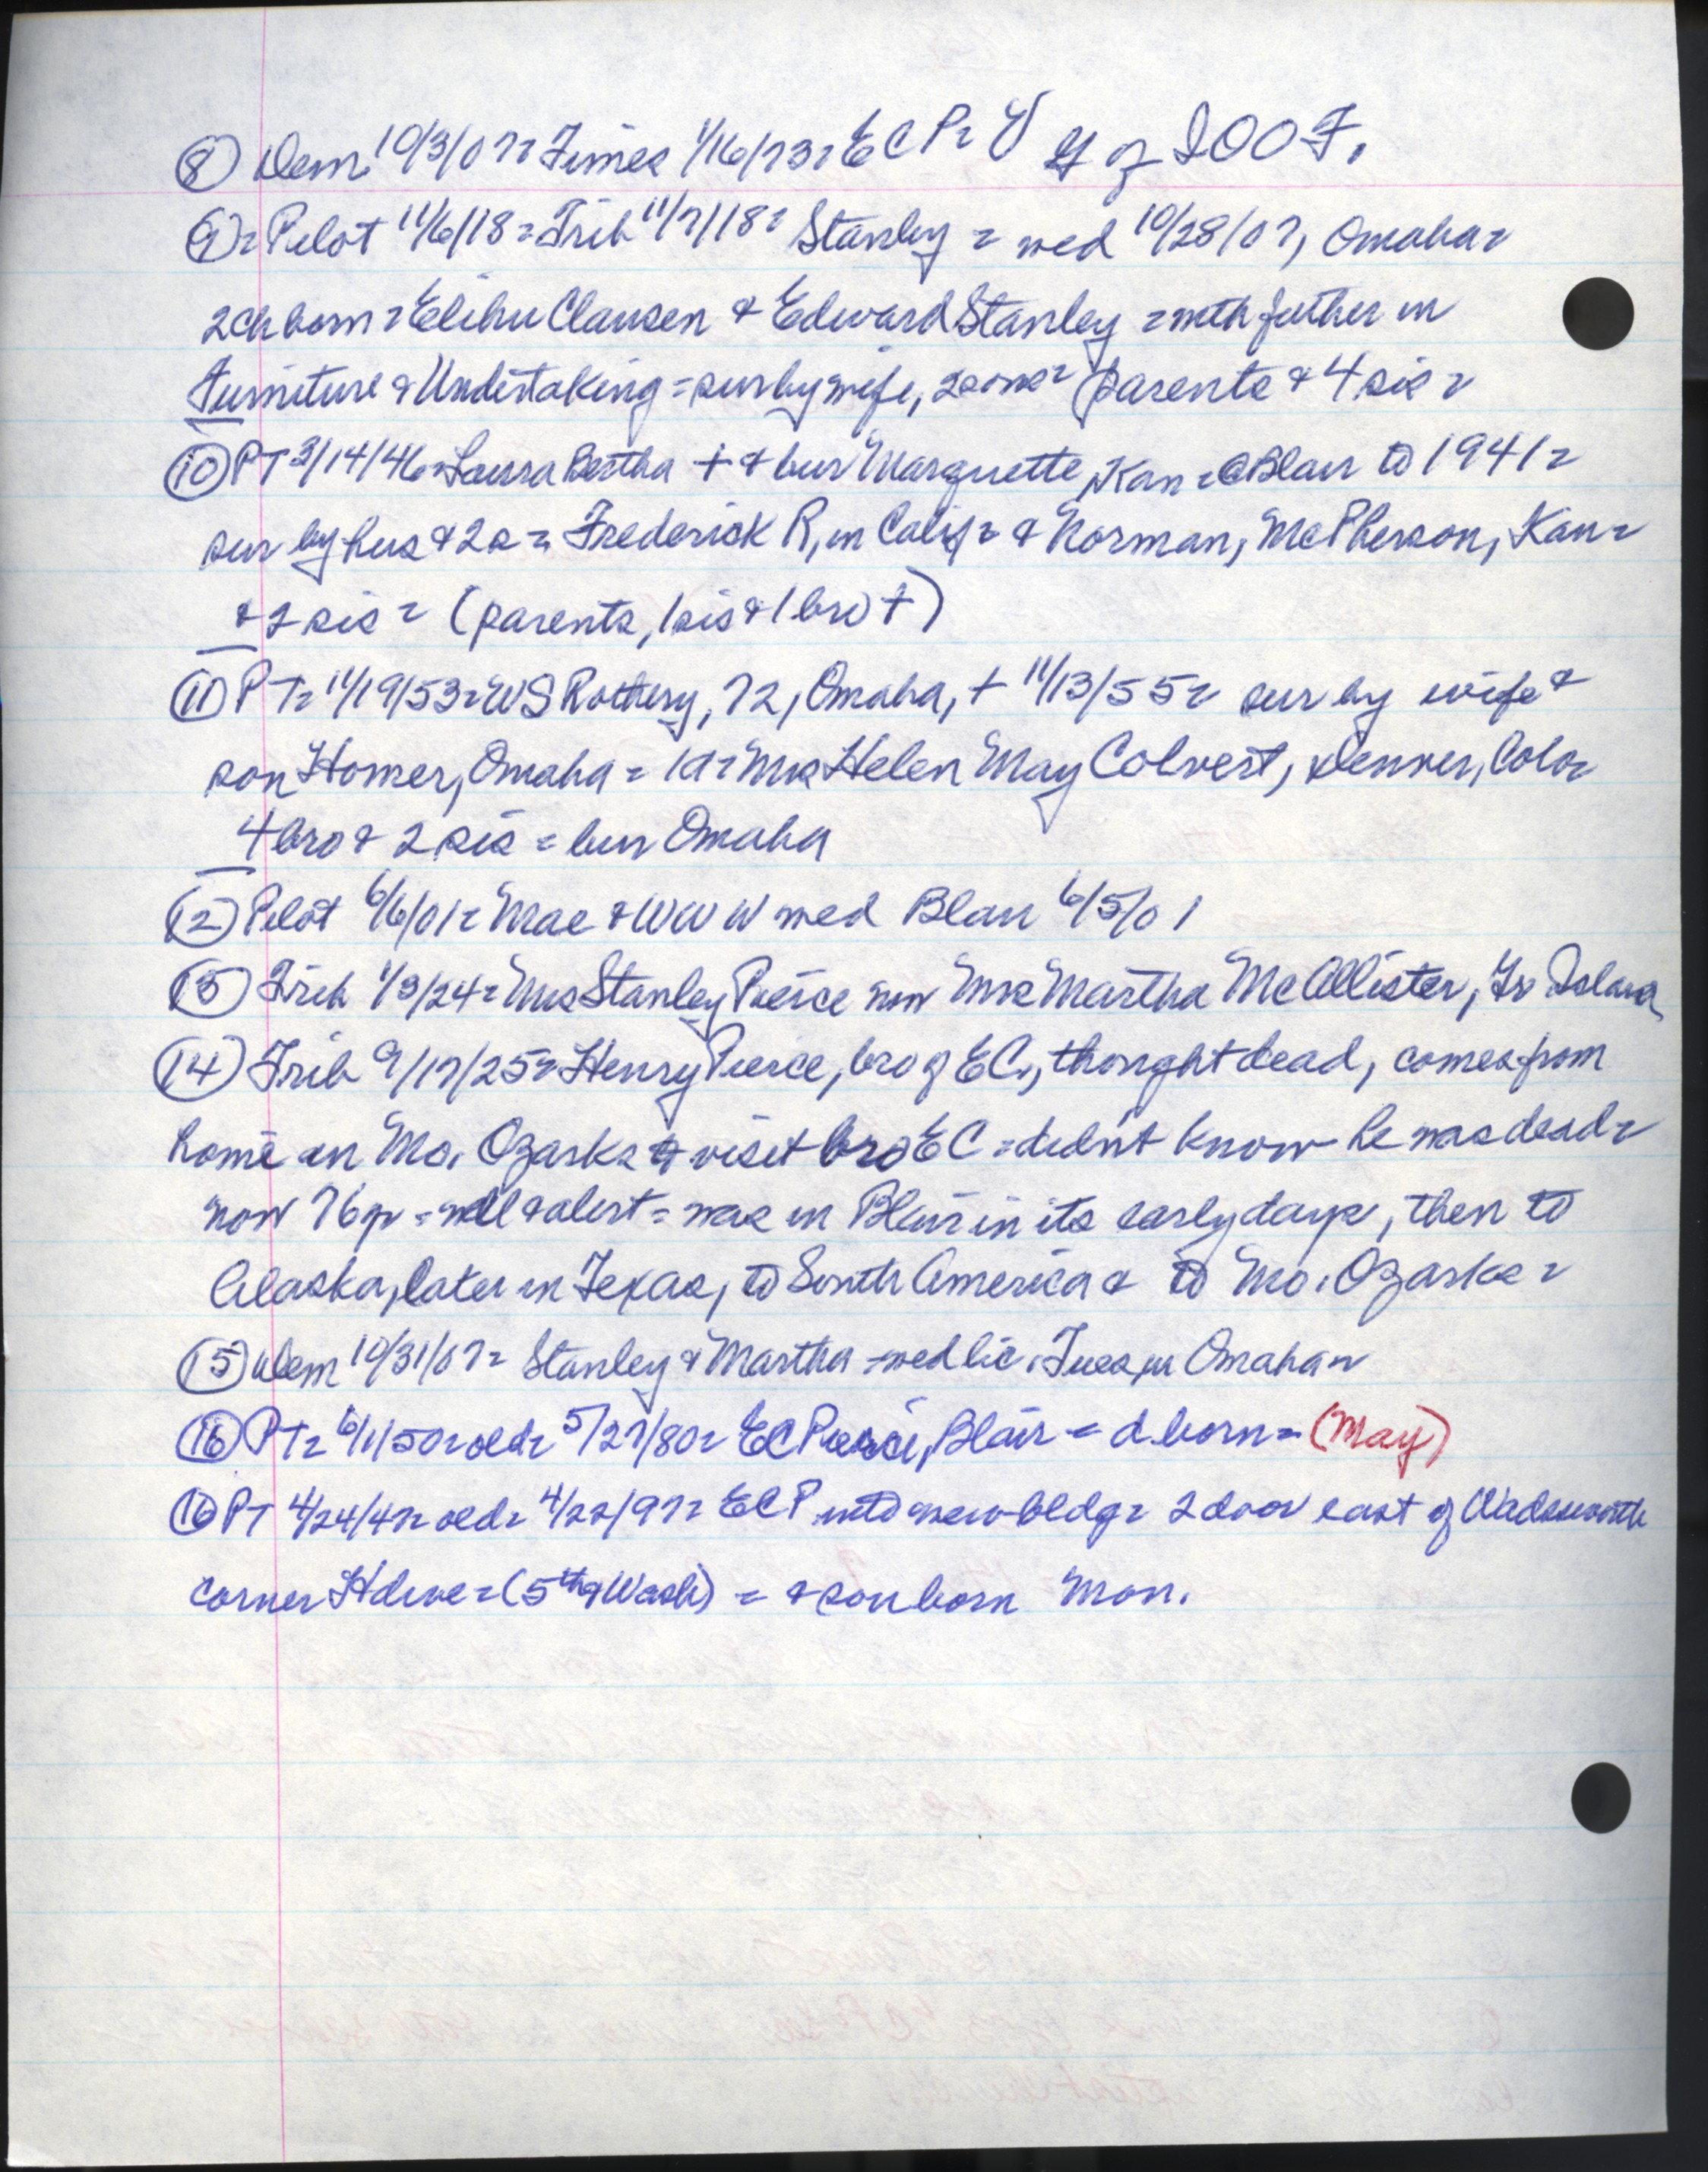 (8) Dem 10/3/07= Times 1/16/73= E C P= V G of IOOF.
(9)= Pilot 11/6/18= Trib 11/7/18= Stanley = wed 10/28/07, Omaha=
2ch born= Elihu Clausen & Edward Stanley = with father in
Furniture & Undertaking = sur by wife, 2 sons= parents & 4 sis =
(10) PT 3/14/46= Laura Bertha + & bur Marquette, Kan = @Blair to 1941=
sur by hus & 2s = Frederick R, in Calif= & Norman, McPherson, Kan=
& 2 sis = (parents, 1sis & 1bro +)
(11) PT= 11/19/53= WS Rothery, 72, Omaha, + 11/13/55= sur by wife &
son Homer, Omaha = 1d= Mrs Helen May Colvert, Denver, Colo=
4bro & 2 sis = bur Omaha
(12) Pilot 6/6/01= Mae & WW W wed Blair 6/5/01
(13) Trib 1/3/24= Mrs Stanley Pierce now Mrs Martha McAllister, Gr Island
(14) Trib 9/17/25= Henry Pierce, bro of EC, thought dead, comes from
home in Mo. Ozarks to visit bro EC = didn't know he was dead=
now 76 yr = well & alert = was in Blair in its early days, then to
Alaska, later in Texas, to South America & to Mo. Ozarks=
(15) Dem 10/31/07= Stanley & Martha - wed lic. Tues in Omaha=
(16) PT= 6/1/50= old= 5/27/80= EC Pierce, Blair = d born = (May)
(16) PT 4/24/47= old= 4/22/97= ECP into new bldg= 2 door east of Wadsworth
corner Hdwe = (5th & Wash) = & son born Mon.